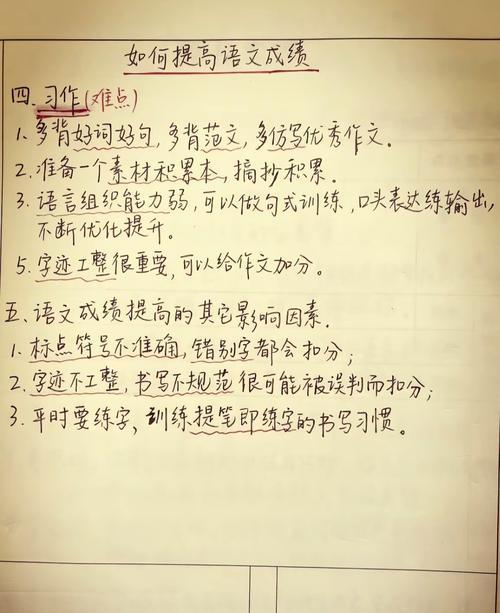 如何提高语文成绩
四.习作(难点)
1.多背好词好句,多背范文,多仿写优秀作文.
2.准备一个素材积累本,摘抄积累.
3.语言组织能力弱,可以做句式训练,口头表达练输出,
不断优化提升。
5.字迹工整很重要,可以给作文加分。
五、语文成绩提高的其它影响因素.
1.标点符号不准确,错别字都会扣分;
2.字迹不工整,书写不规范很可能被误判而扣分;
3.平时要练字,训练提笔即练字的书写习惯。